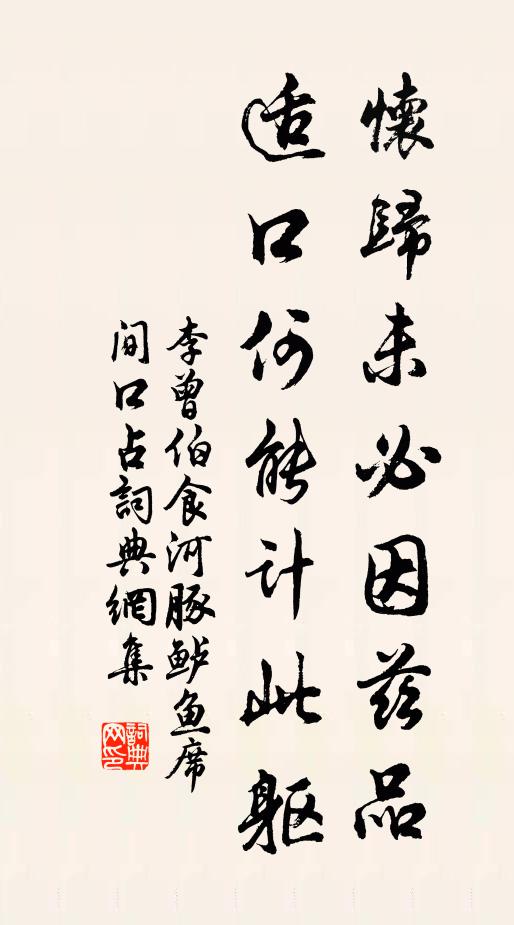 懷歸未必因茲品
适口何能計此軀
李曾伯食河豚鲈鱼席
间口占詞典網集
詞典
网印